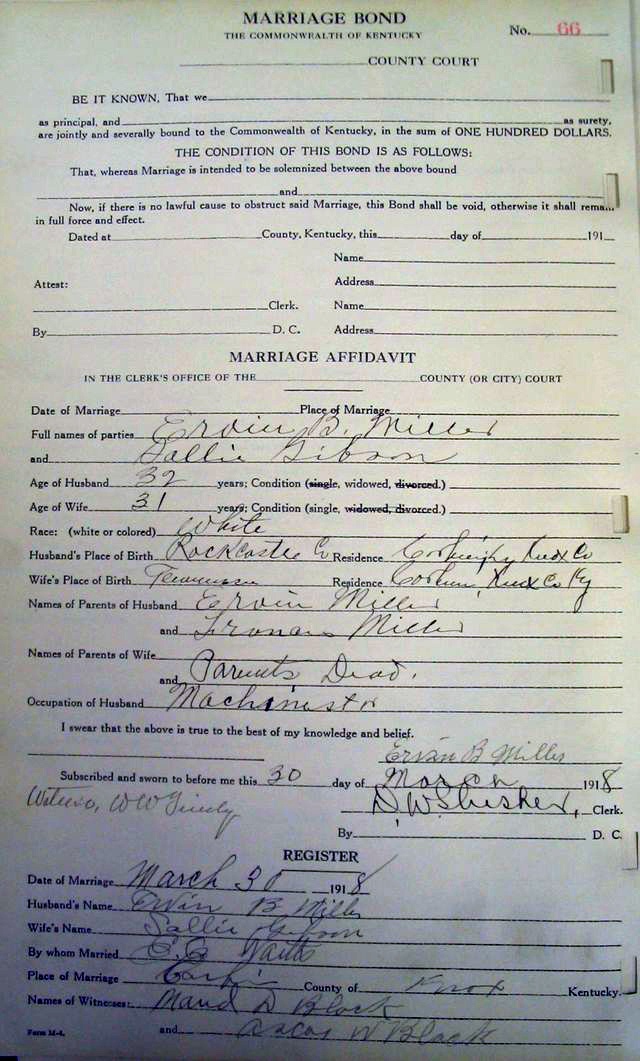 MARRIAGE BOND
THE COMMONWEALTH OF KENTUCKY
No. 66
COUNTY COURT
BE IT KNOWN, That we
as principal, and as surety,
are jointly and severally bound to the Commonwealth of Kentucky, in the sum of ONE HUNDRED DOLLARS.
THE CONDITION OF THIS BOND IS AS FOLLOWS:
That, whereas Marriage is intended to be solemnized between the above bound
and
Now, if there is no lawful cause to obstruct said Marriage, this Bond shall be void, otherwise it shall remain
in full force and effect.
Dated at County, Kentucky, this day of 191
Name
Attest: Address
Clerk. Name
By D. C. Address
MARRIAGE AFFIDAVIT
IN THE CLERK'S OFFICE OF THE COUNTY (OR CITY) COURT
Date of Marriage Place of Marriage
Full names of parties Ervin B. Miller
and Sallie Gibson
Age of Husband 32 years; Condition (single, widowed, divorced.)
Age of Wife 31 years; Condition (single, widowed, divorced.)
Race: (white or colored) White
Husband's Place of Birth Rockcastle Co Residence Corbin Ky Knox Co
Wife's Place of Birth Tennessee Residence Corbin, Knox Co Ky
Names of Parents of Husband Ervin Miller
and Frances Miller
Names of Parents of Wife
and Parents Dead.
Occupation of Husband Machinist
I swear that the above is true to the best of my knowledge and belief.
Ervin B Miller
Subscribed and sworn to before me this 30 day of March 1918
Witness, W W
D. W. Slusher, Clerk.
By D. C.
REGISTER
Date of Marriage March 30 1918
Husband's Name Ervin B Miller
Wife's Name Sallie Gibson
By whom Married
Place of Marriage Corbin County of Knox Kentucky.
Names of Witnesses: Maud D Black
and Oscar W Black
Form M-4.